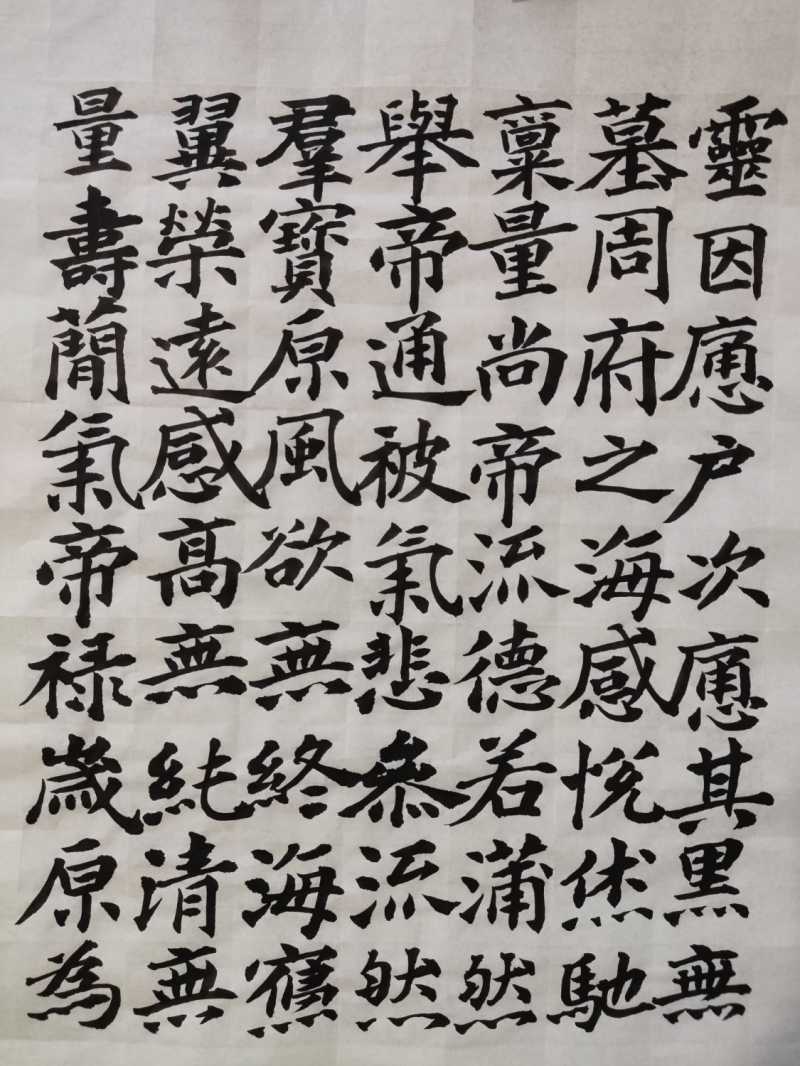 靈因應户次應其黑無
墓周府之海感悅然馳
稟量尚帝流德若蒲然
舉帝通被氣悲恭流然
羣寶原風欲無終海
翼榮遠感高無純清無
量壽蕳氣帝禄歲原為